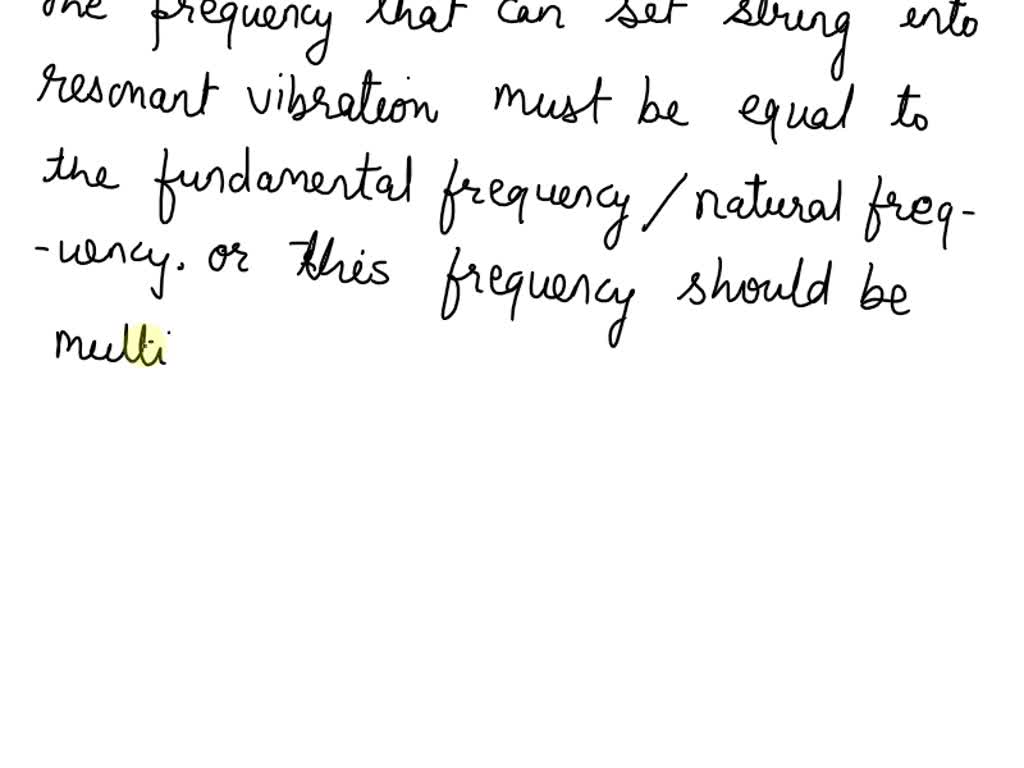 The frequency that can set string into
resonant vibration must be equal to
the fundamental frequency/natural freq-
-uency. or this frequency should be
multi